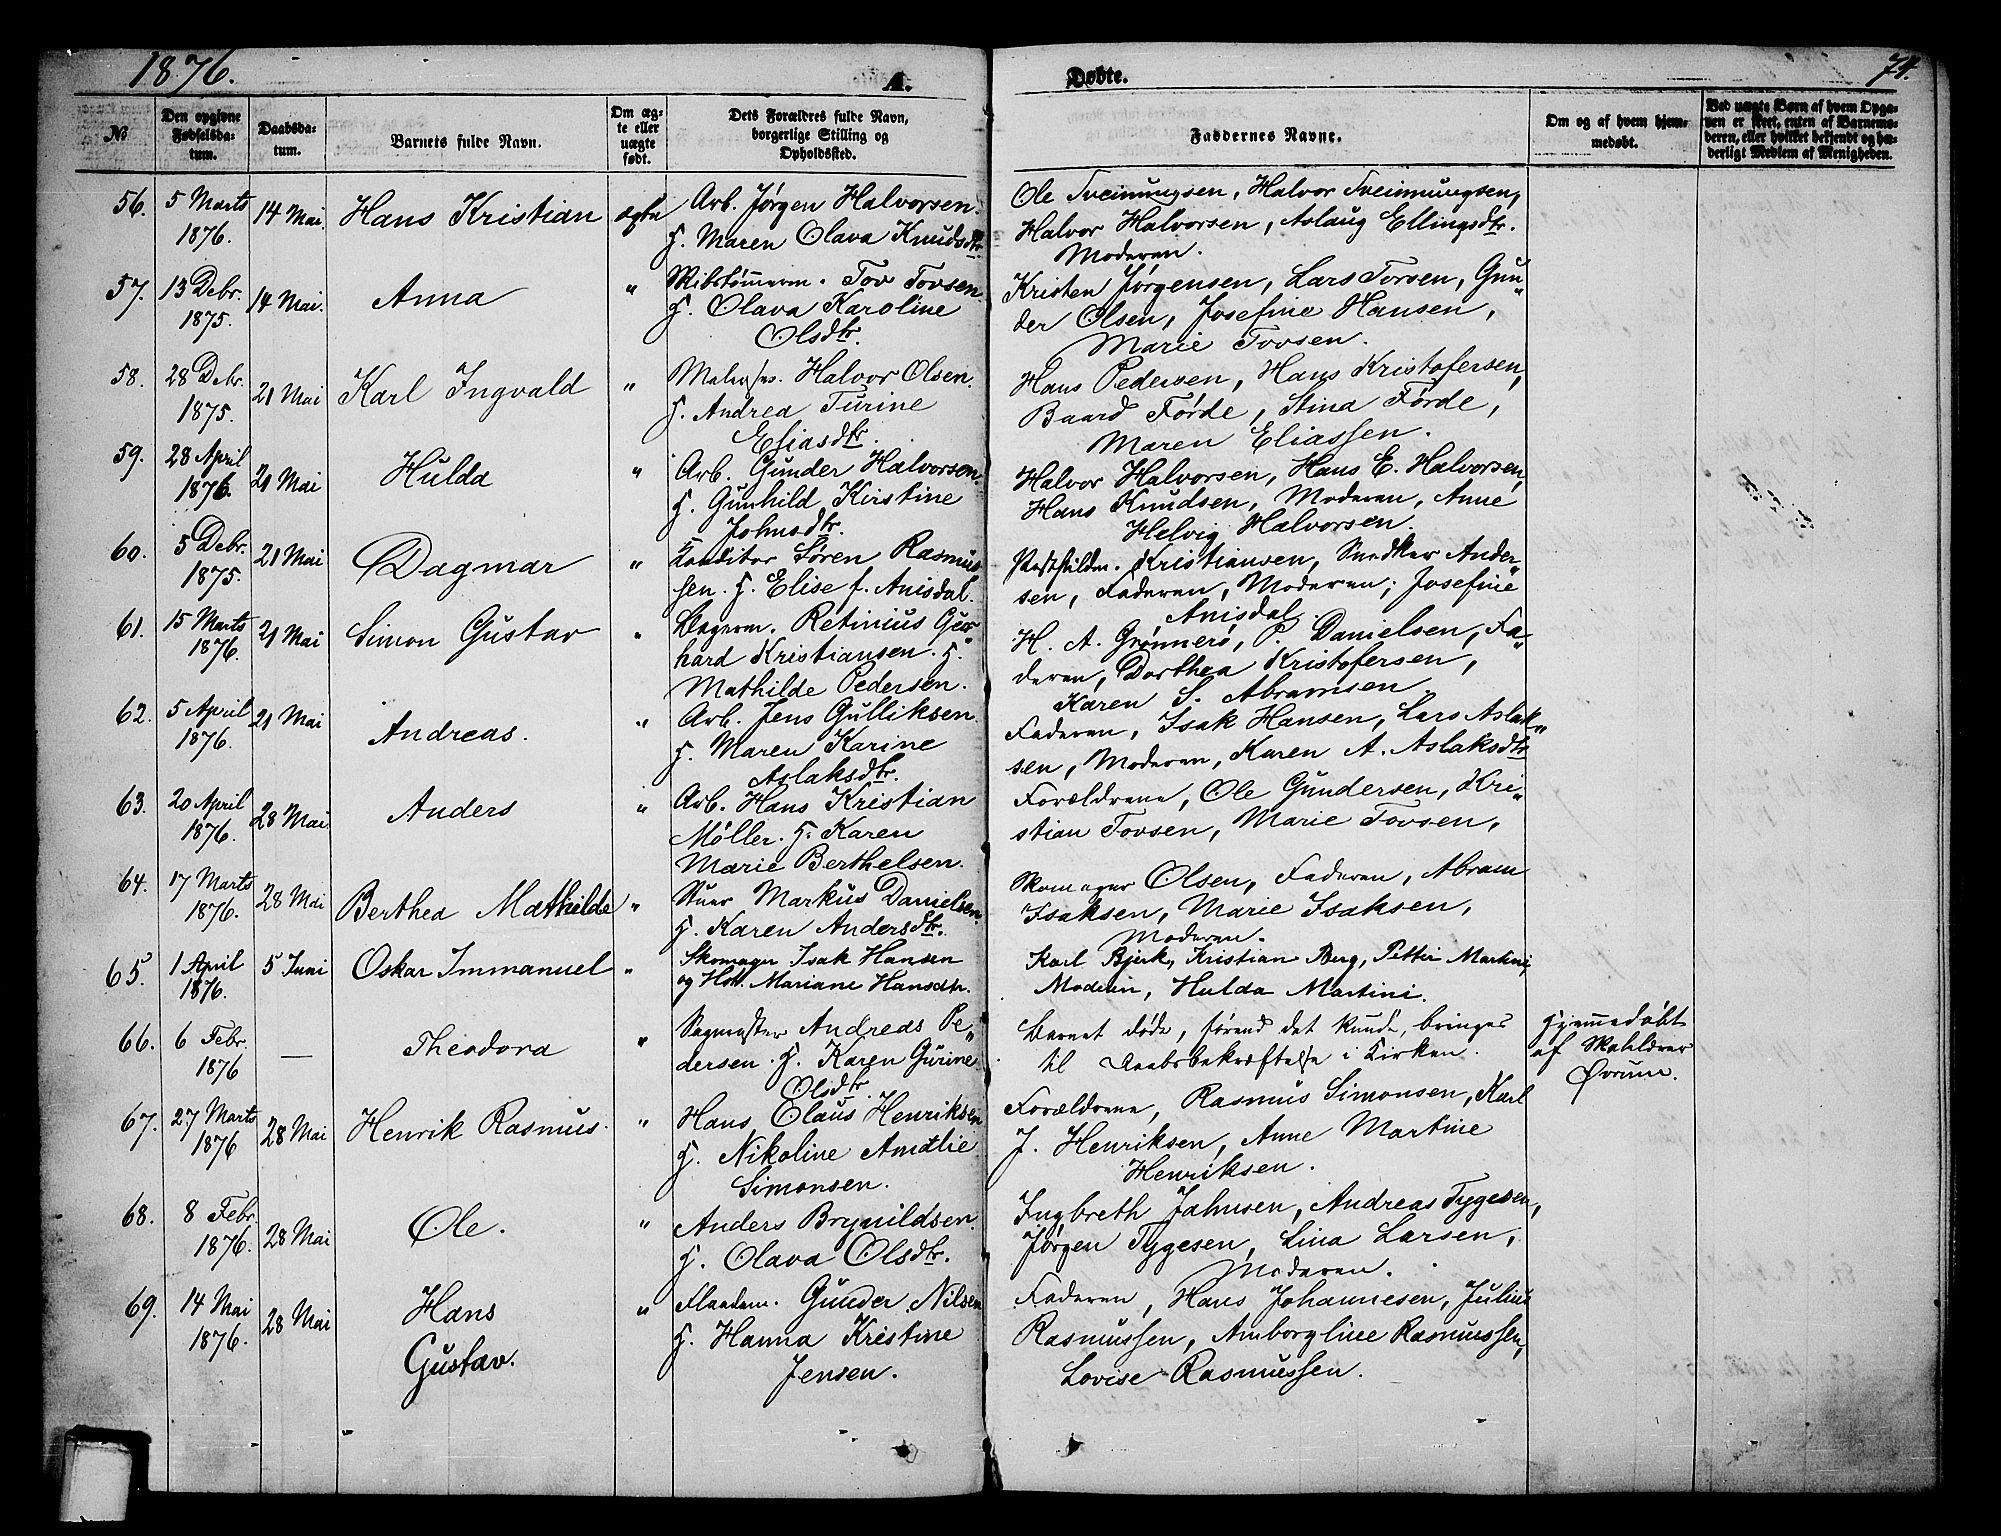 1876.
A.
Døbte.
74.
No
Den opgivne Fødselsdatum.
Daabsdatum.
Barnets fulde Navn.
Om ægte eller uægte født.
Dets Forældres fulde Navn, borgerlige Stilling og Opholdssted.
Faddernes Navne.
Om og af hvem hjemmedøbt.
Ved uægte Børn af hvem Opgaven er skeet, enten af Barnemoderen, eller hvilket bekjendt og hæderligt Medlem af Menigheden.
56. 5 Marts 1876. 14 Mai. Hans Kristian ægte
Arb. Jørgen Halvorsen.
H. Maren Olava Knudsdtr.
Ole Tveinungsen, Halvor Tveinungsen,
Halvor Halvorsen, Aslaug Ellingsdtr.
Moderen.
57. 13 Debr. 1875. 14 Mai. Anna "
Skibstømmerm. Tov Tovsen
H. Olava Karoline
Olsdtr.
Kristen Jørgensen, Lars Torsen, Gun„
der Olsen, Josefine Hansen,
Marie Tovsen.
58. 28 Debr. 1875. 21 Mai Karl Ingvald "
Halvor Olsen.
H. Andrea Turine
Eliasdtr.
Hans Pedersen, Hans Kristofersen,
Baard Førde, Stina Førde,
Maren Eliassen.
59. 28 April 1876. 21 Mai Hulda "
Arb. Gunder Halvorsen.
H. Gunhild Kirstine
Johnsdtr.
Halvor Halvorsen, Hans E. Halvorsen,
Hans Knudsen, Moderen, Anne
Helvig Halvorsen.
60. 5 Debr. 1875. 21 Mai Dagmar "
Konditor Søren Rasmus
sen. H. Elise f. Anisdal.
Kristiansen, Snedker Ander„
sen, Faderen, Moderen; Josefine
Anisdal
61. 15 Marts 1876. 21 Mai Simon Gustav "
Bagerm. Retinius Ger„
hard Kristiansen. H.
Mathilde Pedersen.
H. A. Grønnerø, P. Danielsen, Fa„
deren, Dorthea Kristofersen,
Karen S. Abramsen
62. 5 April 1876. 21 Mai Andreas. "
Arb. Jens Gulliksen
H. Maren Karine
Aslaksdtr.
Faderen, Isak Hansen, Lars Aslak„
sen, Moderen, Karen A. Aslaksdtr
63. 20 April 1876. 28 Mai. Anders "
Arb. Hans Kristian
Møller. H. Karen
Marie Berthelsen.
Forældrene, Ole Gundersen, Kri„
stian Tovsen, Marie Tovsen,
64. 17 Marts 1876. 28 Mai Berthea Mathilde "
Stuer Markus Danielsen
H. Karen Andersdtr.
Skomager Olsen, Faderen, Abram
Isaksen, Marie Isaksen,
Moderen.
65. 1 April 1876. 5 Juni Oskar Immanuel "
Skomager Isak Hansen
og Hst. Mariane Hansdtr.
Karl Bjerk, Kristian Berg, Petter Martini,
Moderen, Hulda Martini.
66. 6 Febr. 1876 — Theodora "
Sagmester Andreas Pe„
dersen. H. Karen Gurine
Olsdtr.
Barnet døde, førend det kunde bringes
til Daabsbekræftelse i Kirken.
Hjemmedøbt
af Skolelærer
Øvrum.
67. 27 Marts 1876 28 Mai Henrik Rasmus. "
Hans Claus Henriksen
H. Nikoline Amalie
Simonsen.
Forældrene, Rasmus Simonsen, Karl
J. Henriksen, Anne Martine
Henriksen.
68. 8 Febr. 1876. 28 Mai Ole. "
Anders Brynildsen.
H. Olava Olsdtr.
Ingbreth Jahnsen, Andreas Tygesen,
Jørgen Tygesen, Lina Larsen,
Moderen.
69. 14 Mai 1876. 28 Mai Hans Gustav. "
Gunder Nilsen
H. Hanna Kristine
Jensen.
Faderen, Hans Johannesen, Julius
Rasmussen, Amborgline Rasmussen,
Lovise Rasmussen.